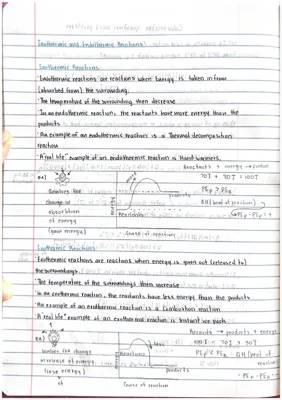 Exothermic and Endothermic Reactions:
Endothermic Reactions:
· Endothermic reactions are reactions when Energy is taken in from
(absorbed from) the surrounding.
· The temperature of the surrounding then decrease
· In an endothermic reaction, the reactants have more energy than the
products
· An example of an endothermic reaction is a Thermal decomposition
reaction
· A "real life" example of an endothermic reaction is Hand warmers.
Reactants + energy → product
70J + 30J = 100J
eg)
PEp > PER
products
Involves the
change in
absorption
of energy
(gain energy)
Reactants
ΔH (heat of reaction)
Course of reaction
Exothermic Reactions:
· Exothermic reactions are reactions when energy is given out (released to)
the surroundings.
· The temperature of the surroundings then increase
· In an exothermic reaction, the reactants have less energy than the products
· An example of an exothermic reaction is a Combustion reaction
· A "real life" example of an exothermic reaction is Instant ice pack
Reactants → products + energy
eg)
Reactants
100J = 70J + 30J
involves the change
in release of energy
(lose energy)
products
ΔH (heat of
reaction
Course of reaction
of